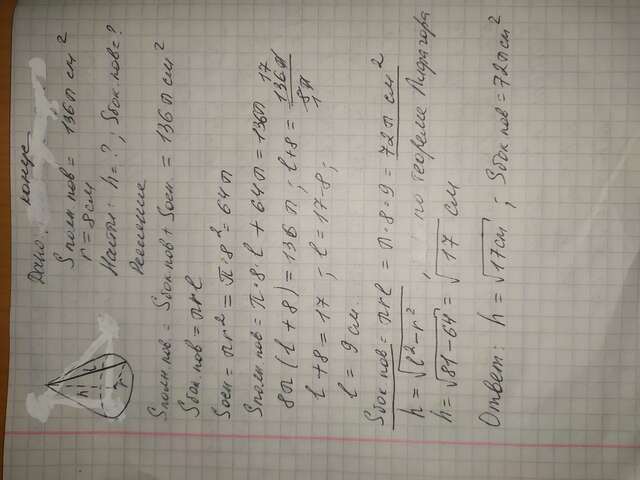 Дано: конус
Sполн пов = 136π см²
r = 8см
Найти: h = ?; Sбок пов = ?
Решение
h l
r
Sполн пов = Sбок пов + Sосн = 136π см²
Sбок пов = πrl
Sосн = πr² = π·8² = 64π
Sполн пов = π·8·l + 64π = 136π
8π(l+8) = 136π; l+8 = 136π/8π 17 1
l+8 = 17; l = 17-8;
l = 9см.
Sбок пов = πrl = π·8·9 = 72π см²
h = √l²-r²; по теореме Пифагора
h = √81-64 = √17 см
Ответ: h = √17см; Sбок пов = 72πсм²